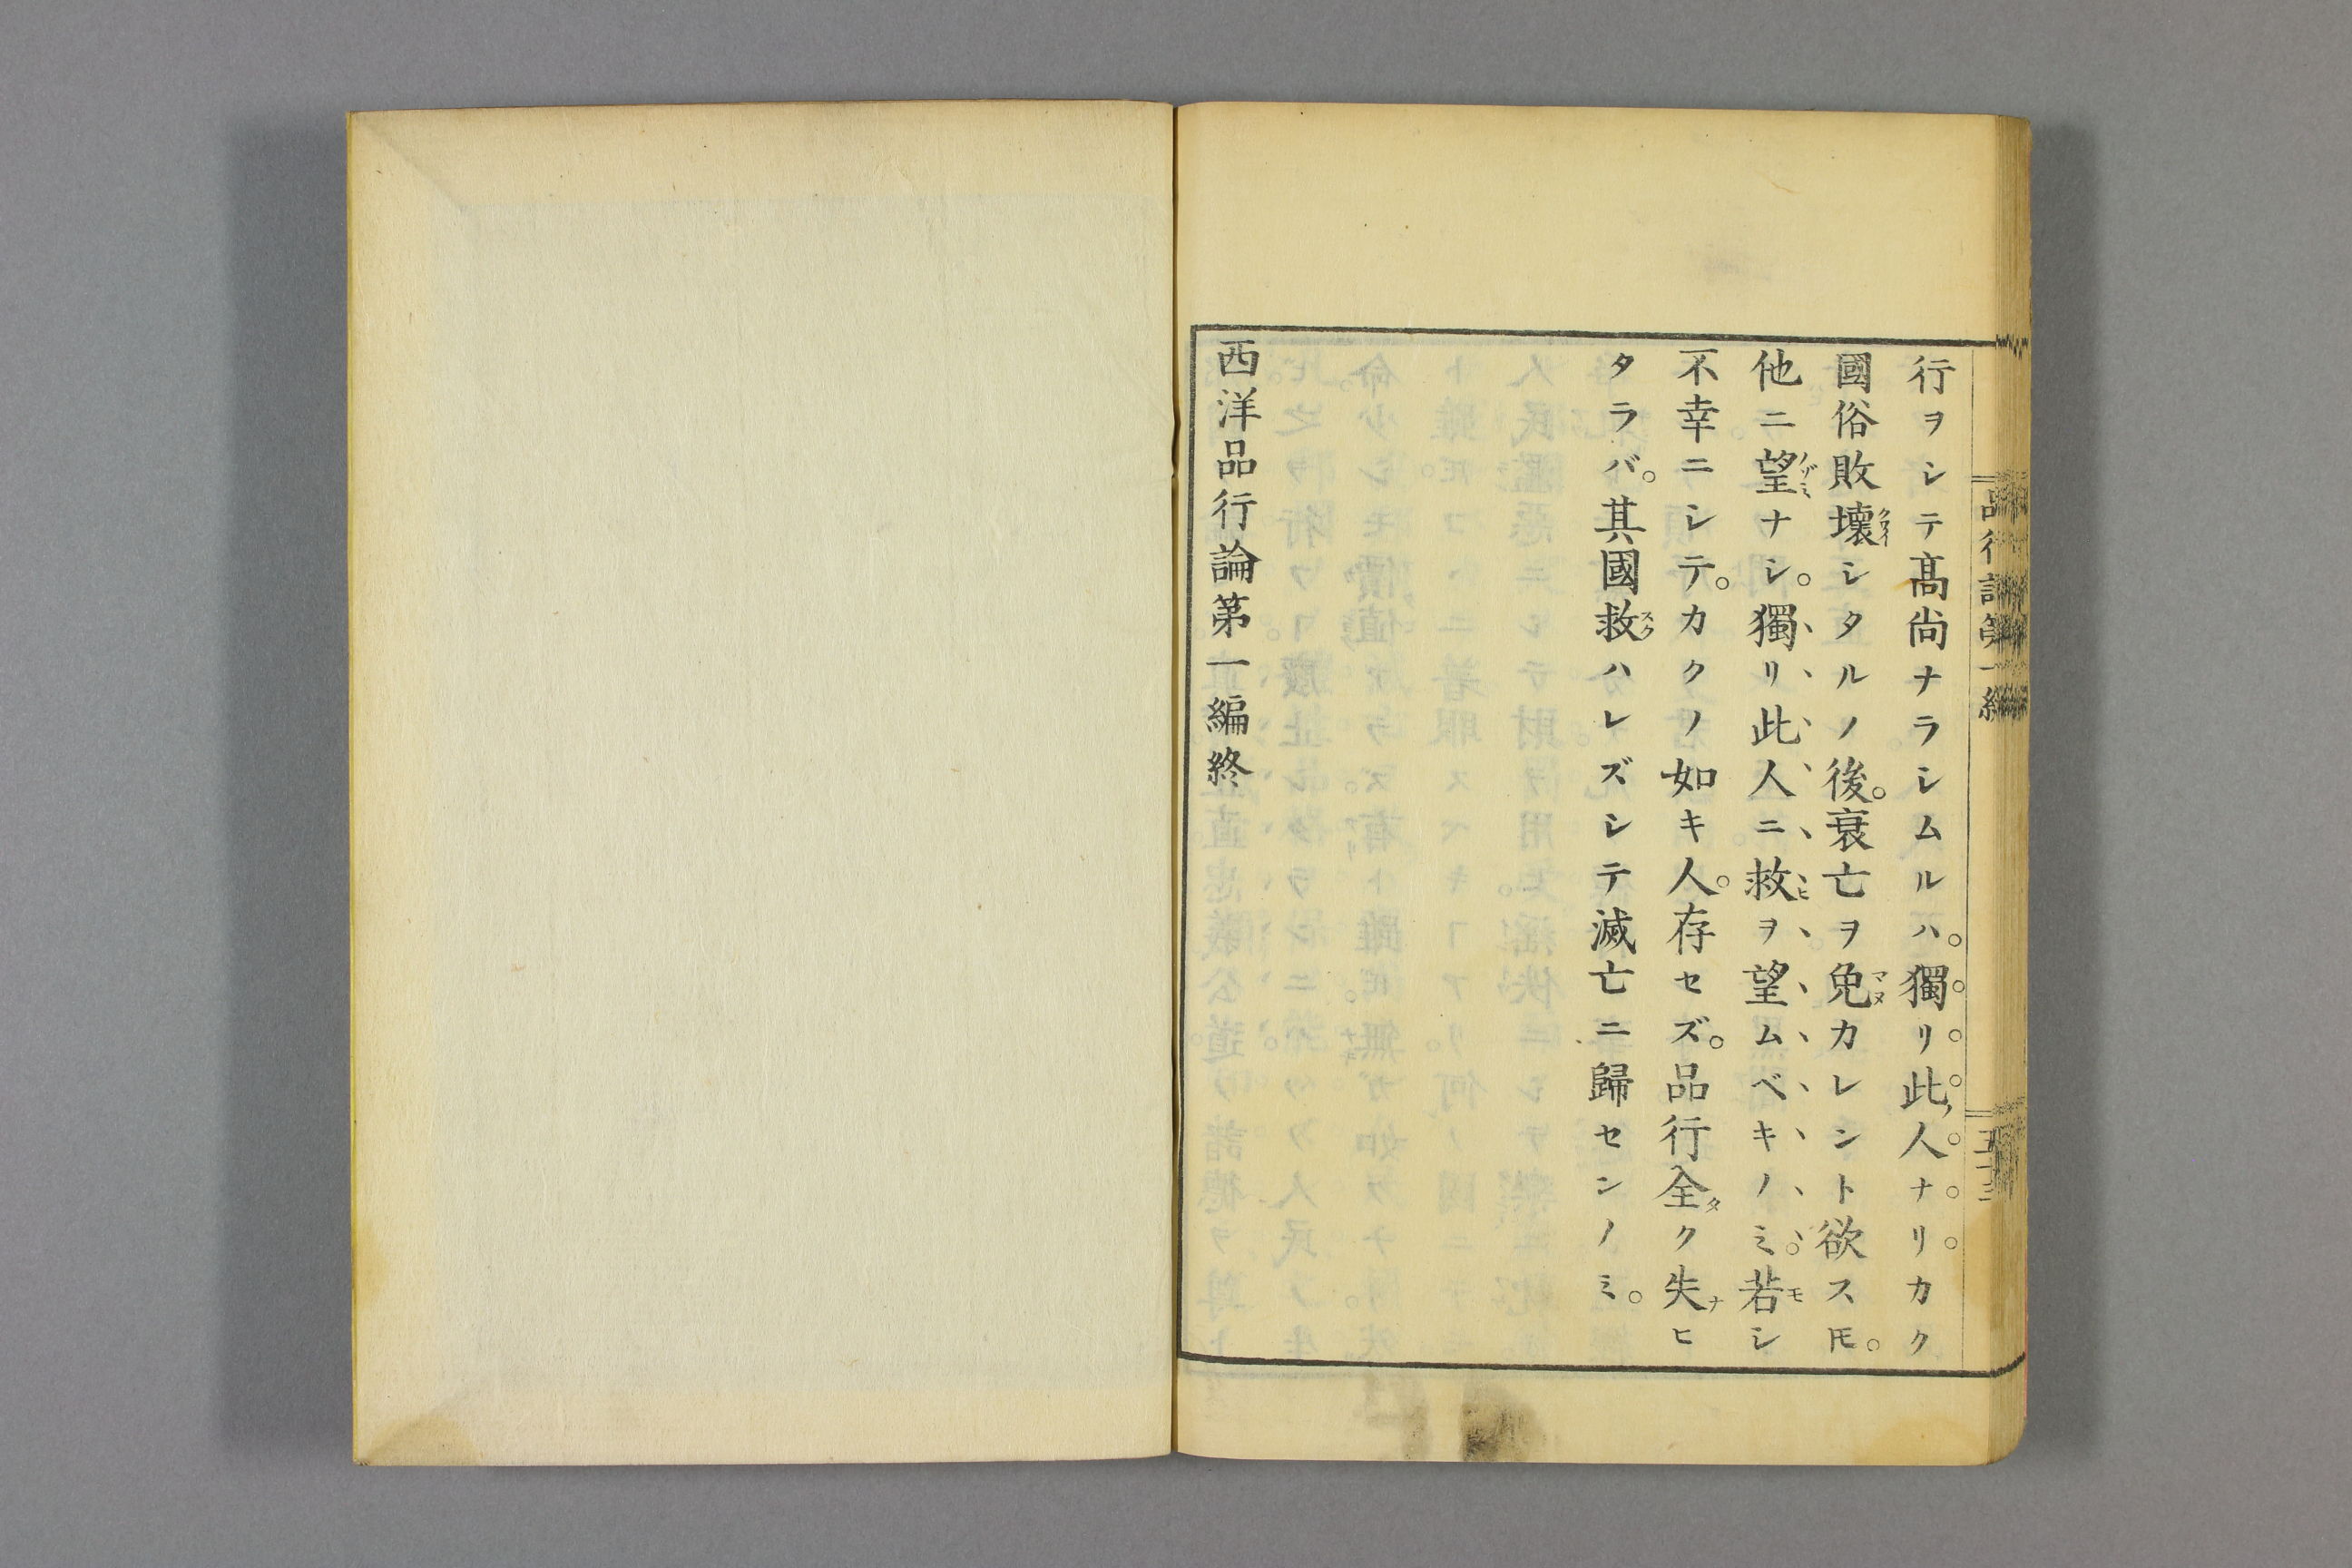 行ヲシテ高尚ナラシムルハ。獨リ此ノ人ナリカク
國俗敗壞シタルノ後。衰亡ヲ免カレント欲スㇳモ。
他ニ望ナシ。獨リ此人ニ救ヒヲ望ムベキノミ。若シ
不幸ニシテ。カクノ如キ人。存セズ。品行全ク失ヒ
タラバ。其國救ハレズシテ滅亡ニ歸センノミ。
西洋品行論第一編終